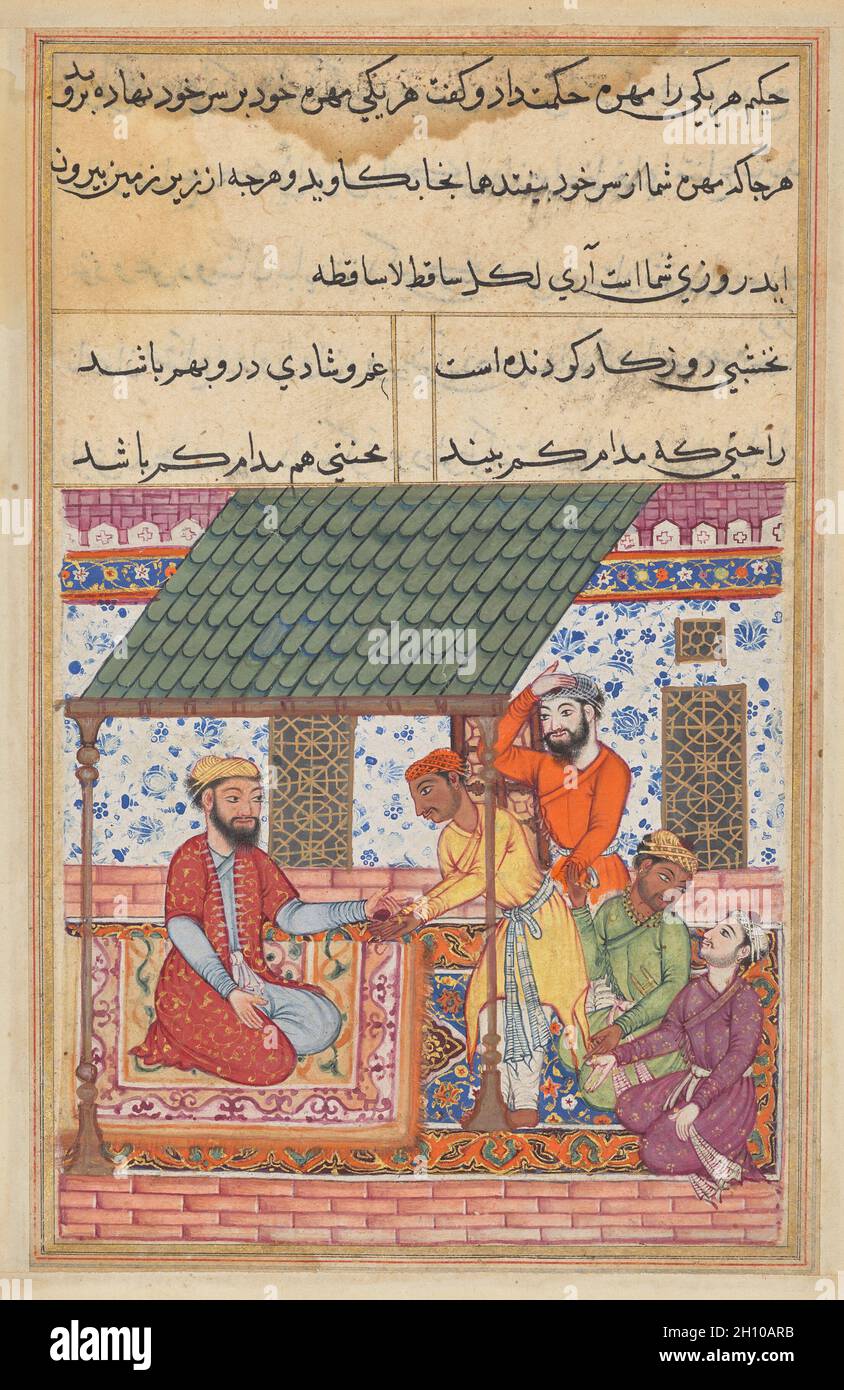 حكيم هر يكي را مهره حكمت داد و كفت هر يكي مهره خود بر سر خود نهاده برويد
هر جا كه مهره شما از سر خود بيفتد ها نجا بكاويد و هر چه از زير زمين بيرون
ايد روزي شما است آري لكل ساقط لاساقطه
نخشبي روزكار كردنده است غم و شادي درو بهم باشد
راحتي كه مدام كم بيند محنتي هم مدام كم باشد
alamy
alamy
Image ID: 2H10ARB
www.alamy.com